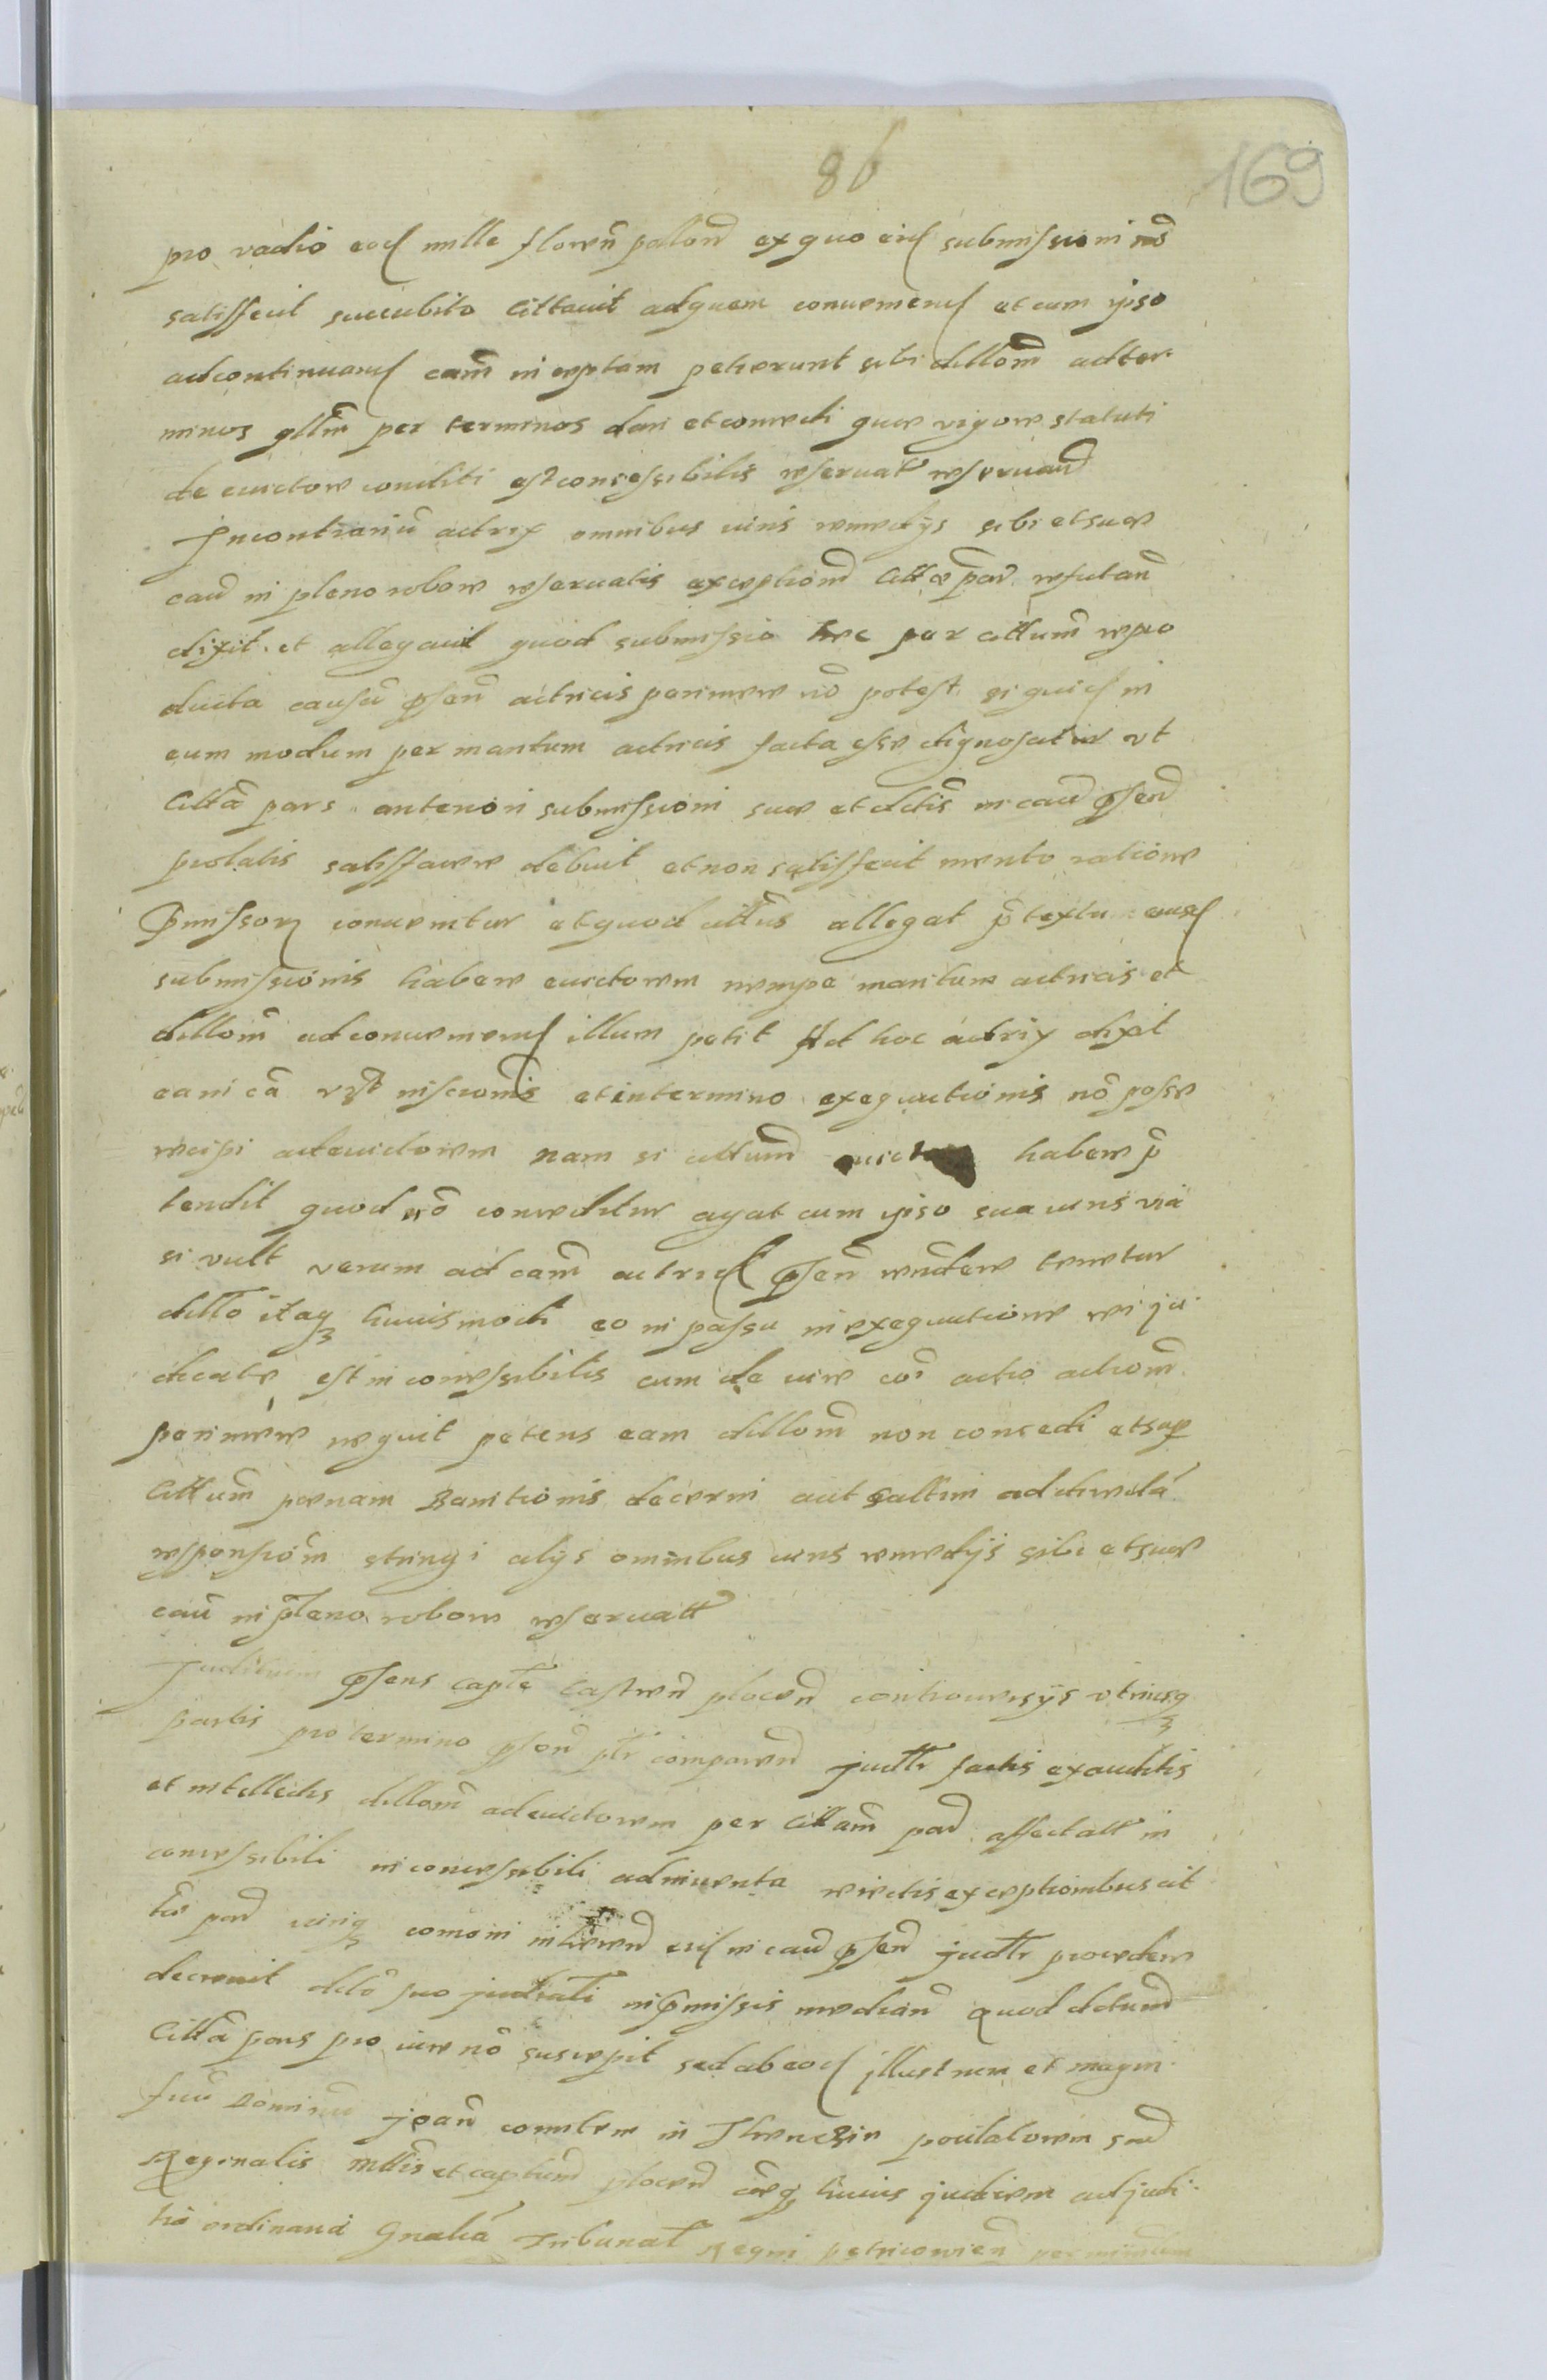 86
169
pro vadio eod mille floren polon ex quo eid submissioni no
satisfecit succubito cittavit ad quem conveniend et cum ipso
ad continuand cam inceptam petierunt sibi dillom ad ter
minos gllm per terminos dari et concedi que vigore statuti
de evictore conditi est concessibilis reservat reservand
In contrariu actrix omnibus iuris remedys sibi et sue
cau in pleno robore reservatis exceptiom citt e par refutan
dixit et allegavit quod submissio hec per cittum repro
ducta causa psen actricis perimere no potest siquid in
eum modum per maritum actricis facta esse dignoscitur vt
citta pars anteriori submissioni sue et dictis in cau psen
prolatis satisfacere debuit et non satisfecit merito ratione
pmissor convenitur et quod cittus allegat ptextu eiusd
submissionis habere evictorem nempe maritum actricis et
dillom ad conveniend illum petit Ad hoc actrix dixit
ea in ca vst niscionis et in termino exequutionis no posse
recipi ad evictorem nam si cittum evictorem habere p
tendit quod no conceditur agat cum ipso sua iuris via
si vult verum ad cam actricis psen rnder tenetur
dillo itaq huiusmodi eo in passu in exequutione rei ju
dicate est inconcessibilis cum de iure co actio actiom
perimere nequit petens eam dillom non concedi et sup
cittum penam Banitionis decerni aut saltim ad directa
responsiom stringi alys omnibus iuris remedys sibi et sue
cau in pleno robore reservatt
Judicium psens capte castren plocen controversys vtriusq
partis pro termino psen ptr comparen judtr factis exauditis
et intellectis dillom ad evictorem per cittam par affectatt in
concessibili inconcessibili adinventa reiectis exceptionibus cit
te par utriq comoni interend eid in cau psen judtr procedere
decrevit dcto suo judiciali in pmissis median Quod dctum
citta pars pro iure no suscepit sed ab eod illustrem et magni
ficu Dominu joan comitem in Thenczin poculatorem sue
Reginalis Mttis et captum plocen ceq huius judicem ad judi
tia ordinaria Gnalia Tribunal Regni petricovien